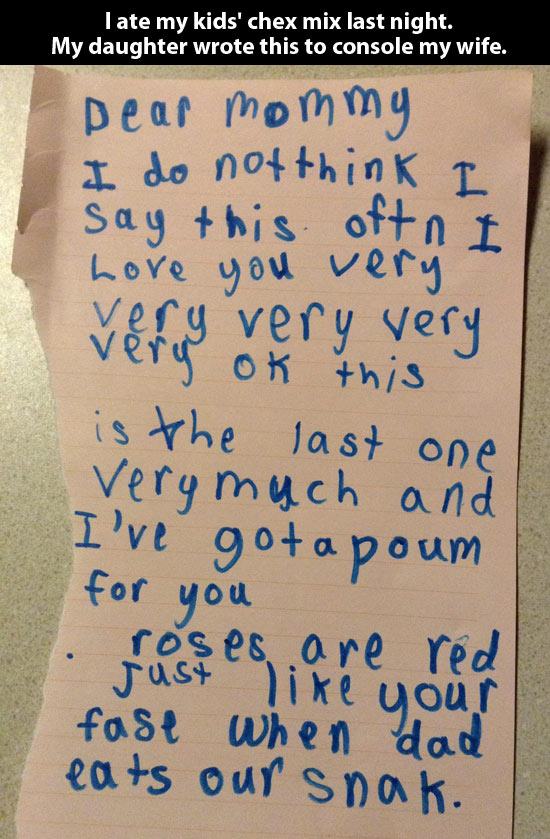 I ate my kids' chex mix last night.
My daughter wrote this to console my wife.
Dear mommy
I do not think I
say this oftn I
Love you very
very very very
very ok this
is the last one
very much and
I've got a poum
for you
. roses are red
just like your
fase when dad
eats our snak.